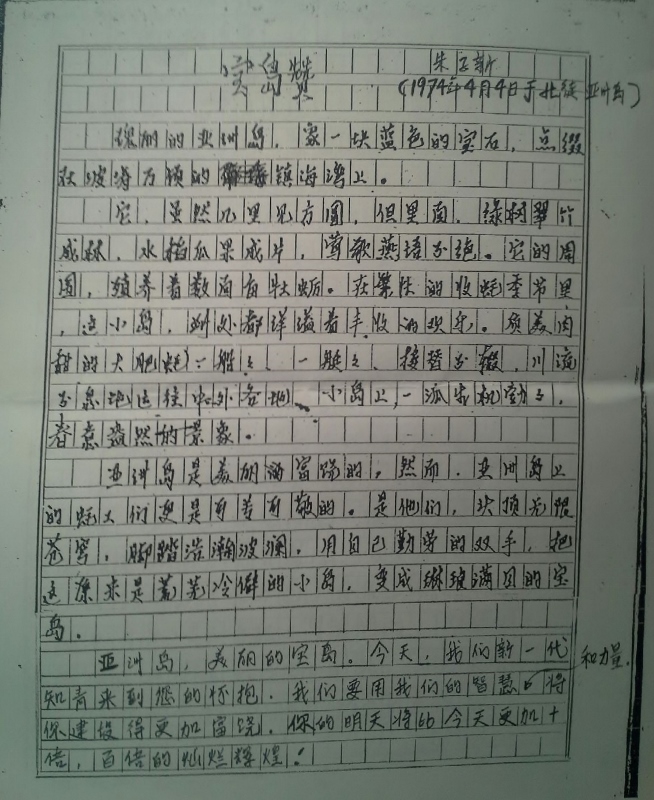 宝岛赞
朱
(1974年4月4日于北 亚洲岛)
瑰丽的亚洲岛，象一块蓝色的宝石，点缀
在波涛万顷的镇海湾上。
它，虽然几里见方圆，但里面，绿树翠竹
成林，水稻瓜果成片，莺歌燕语不绝。它的周
围，殖养着数百亩牡蛎。在繁忙的收蚝季节里
，这小岛，到处都洋溢着丰收的欢乐。质美肉
甜的大肥蚝，一船々、一艇々，接替不辍，川流
不息地运往中外各地。小岛上，一派生机勃々，
春意盎然的景象。
亚洲岛是美丽的富饶的，然而，亚洲岛上
的蚝工们更是可爱可敬的。是他们，头顶无限
苍穹，脚踏浩瀚波澜，用自己勤劳的双手，把
这原来是荒芜冷僻的小岛，变成琳琅满目的宝
岛。
亚洲岛，美丽的宝岛。今天，我们新一代
知青来到您的怀抱，我们要用我们的智慧和力量，将
你建设得更加富饶。你的明天将比今天更加十
倍，百倍的灿烂辉煌！